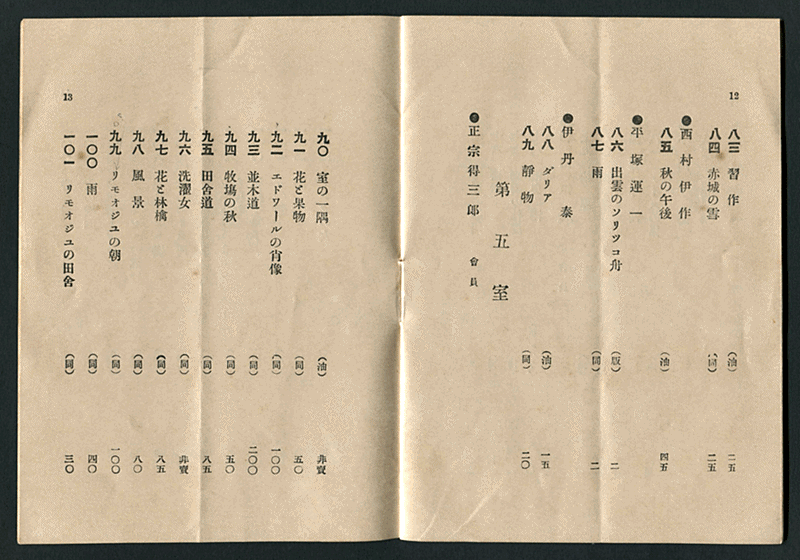 12
八三 習作 (油) 二五
八四 赤城の雪 (同) 二五
●西村伊作
八五 秋の午後 (油) 四五
●平塚運一
八六 出雲のソリツコ舟 (版) 二
八七 雨 (同) 二
●伊丹泰
八八 ダリア (油) 一五
八九 靜物 (同) 二〇
第五室
●正宗得三郎 會員
13
九〇 室の一隅 (油) 非賣
九一 花と果物 (同) 五〇
九二 エドワールの肖像 (同) 一〇〇
九三 並木道 (同) 二〇〇
九四 牧場の秋 (同) 五〇
九五 田舍道 (同) 八五
九六 洗濯女 (同) 非賣
九七 花と林檎 (同) 八五
九八 風景 (同) 八〇
九九 リモオジユの朝 (同) 一〇〇
一〇〇 雨 (同) 四〇
一〇一 リモオジユの田舍 (同) 三〇